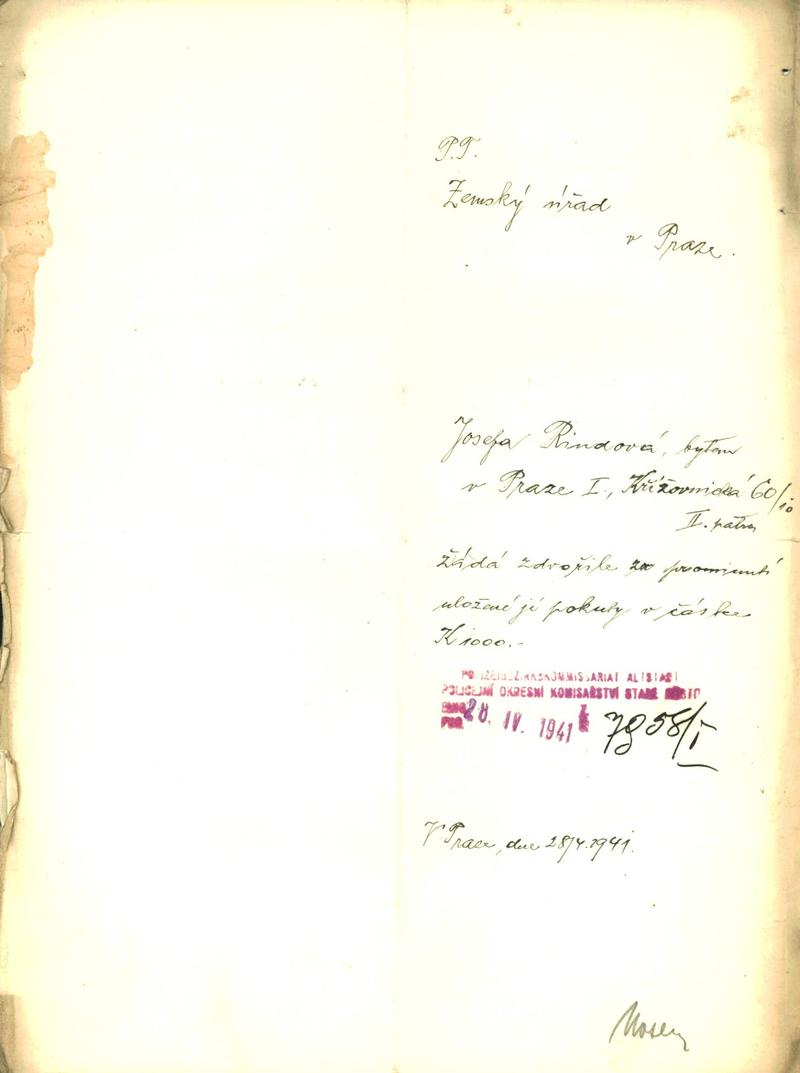 P.T.
Zemský úřad
v Praze.
Josefa Rindová, bytem
v Praze I., Křižovnická 60/10
II. patro
žádá zdvořile za prominutí
uložené jí pokuty v částce
K 1000.-
POLIZEIBEZIRKSKOMMISSARIAT ALTSTADT
POLICEJNÍ OKRESNÍ KOMISAŘSTVÍ STARÉ MĚSTO
28. IV. 1941
7958/I
V Praze, dne 28/4.1941.